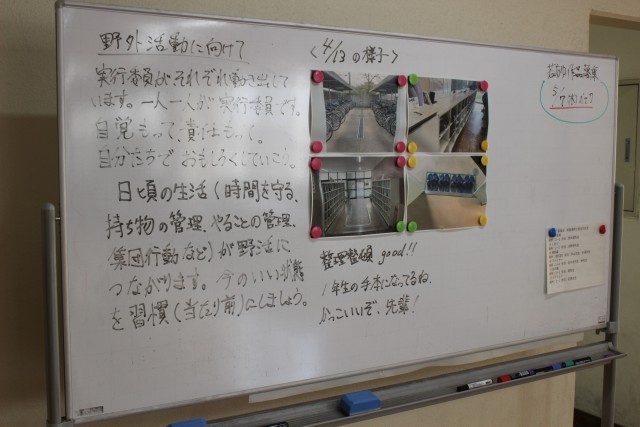 野外活動に向けて
実行委員がそれぞれ動き出して
います。一人一人が実行委員です。
自覚もって、責任もって。
自分たちで おもしろくしていこう。
日頃の生活(時間を守る、
持ち物の管理、やることの管理、
集団行動など)が野活に
つながります。今のいい状態
を習慣(当たり前)にしましょう。
<4/13 の様子>
整理整頓 good!!
1年生の手本になってるね。
かっこいいぞ、先輩!
5/7(水)〆切